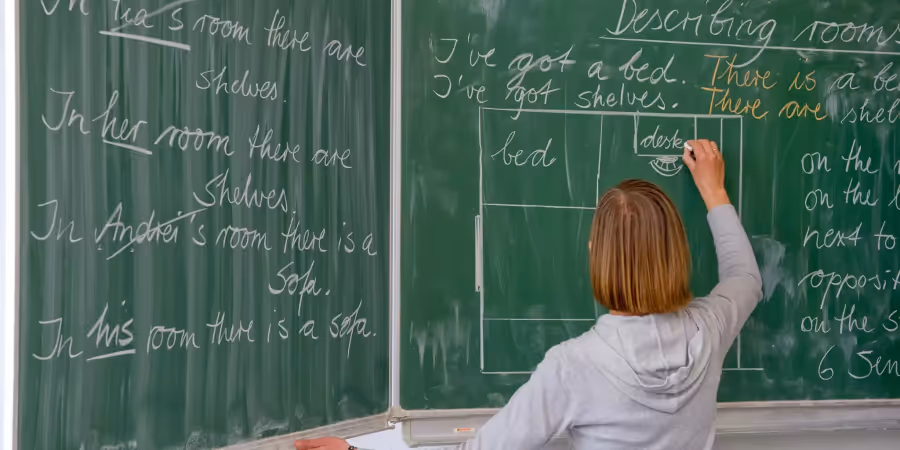 In Tea's room there are
shelves.
In her room there are
shelves.
In Andrei's room there is a
sofa.
In his room there is a sofa.
Describing rooms
I've got a bed. There is a
I've got shelves. There are
bed
desk
on the
on the
next to
on the
6